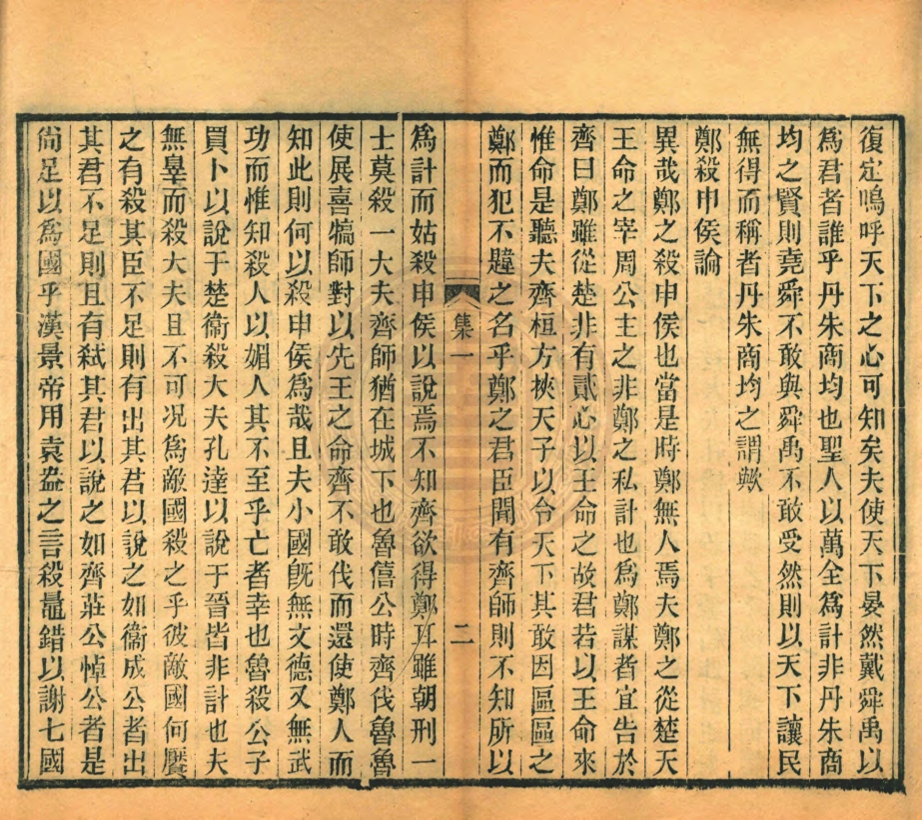 復定嗚呼天下之心可知矣夫使天下晏然戴舜禹以
為君者誰乎丹朱商均也聖人以萬全為計非丹朱商
均之賢則堯舜不敢與舜禹不敢受然則以天下讓民
無得而稱者丹朱商均之謂歟
鄭殺申侯論
異哉鄭之殺申侯也當是時鄭無人焉夫鄭之從楚天
王命之宰周公主之非鄭之私計也為鄭謀者宜告於
齊曰鄭雖從楚非有貳心以王命之故君若以王命來
惟命是聽夫齊桓方挾天子以令天下其敢因區區之
鄭而犯不韙之名乎鄭之君臣聞有齊師則不知所以
集一
二
為計而姑殺申侯以說焉不知齊欲得鄭耳雖朝刑一
士莫殺一大夫齊師猶在城下也魯僖公時齊伐魯魯
使展喜犒師對以先王之命齊不敢伐而還使鄭人而
知此則何以殺申侯為哉且夫小國旣無文德又無武
功而惟知殺人以媚人其不至乎亡者幸也魯殺公子
買卜以說于楚衞殺大夫孔達以說于晉皆非計也夫
無辠而殺大夫且不可況為敵國殺之乎彼敵國何饜
之有殺其臣不足則有出其君以說之如衞成公者出
其君不足則且有弒其君以說之如齊莊公悼公者是
尚足以為國乎漢景帝用袁盎之言殺鼂錯以謝七國